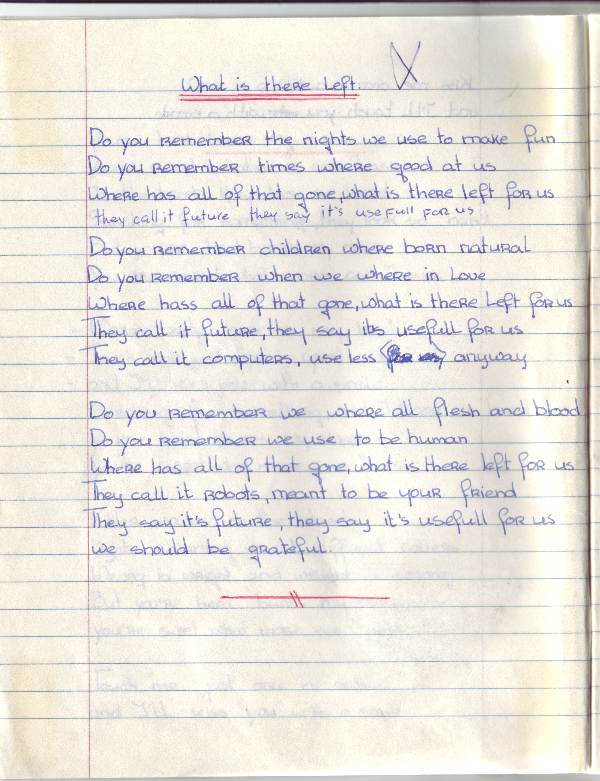 What is there Left.
Do you Remember the nights we use to make fun
Do you Remember times where good at us
Where has all of that gone, what is there left for us
they call it future they say it's usefull for us
Do you Remember children where born natural
Do you Remember when we where in Love
Where hass all of that gone, what is there Left for us
They call it future, they say its usefull for us
They call it computers, use less anyway
Do you Remember we where all flesh and blood
Do you Remember we use to be human
Where has all of that gone, what is there left for us
They call it Robots, meant to be your friend
They say it's future, they say it's usefull for us
we should be grateful.